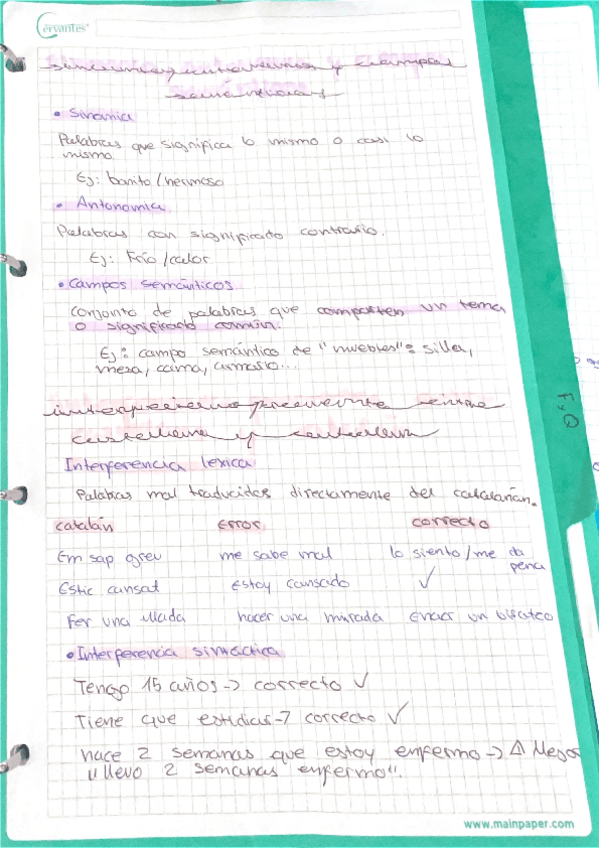 Cervantes
Sinonimia, antonimia y campos
semánticos
• Sinonimia
Palabras que significa lo mismo o casi lo
mismo
Ej: bonito/hermoso
• Antonomia
Palabras con significado contrario.
Ej: Frío/calor
• Campos semánticos
Conjunto de palabras que comparten un tema
o significado común.
Ej: campo semántico de "muebles": silla,
mesa, cama, armario...
castellano y catalán
Interferencia lexica
Palabras mal traducidas directamente del catalán.
catalán Error correcto
Em sap greu me sabe mal lo siento/me da
pena
Estic cansat Estoy cansado ✓
Fer una ullada hacer una mirada Echar un vistazo
• Interferencia sintáctica
Tengo 15 años -> correcto ✓
Tiene que estudiar -> correcto ✓
hace 2 semanas que estoy enfermo -> Mejor
"llevo 2 semanas enfermo".
www.mainpaper.com